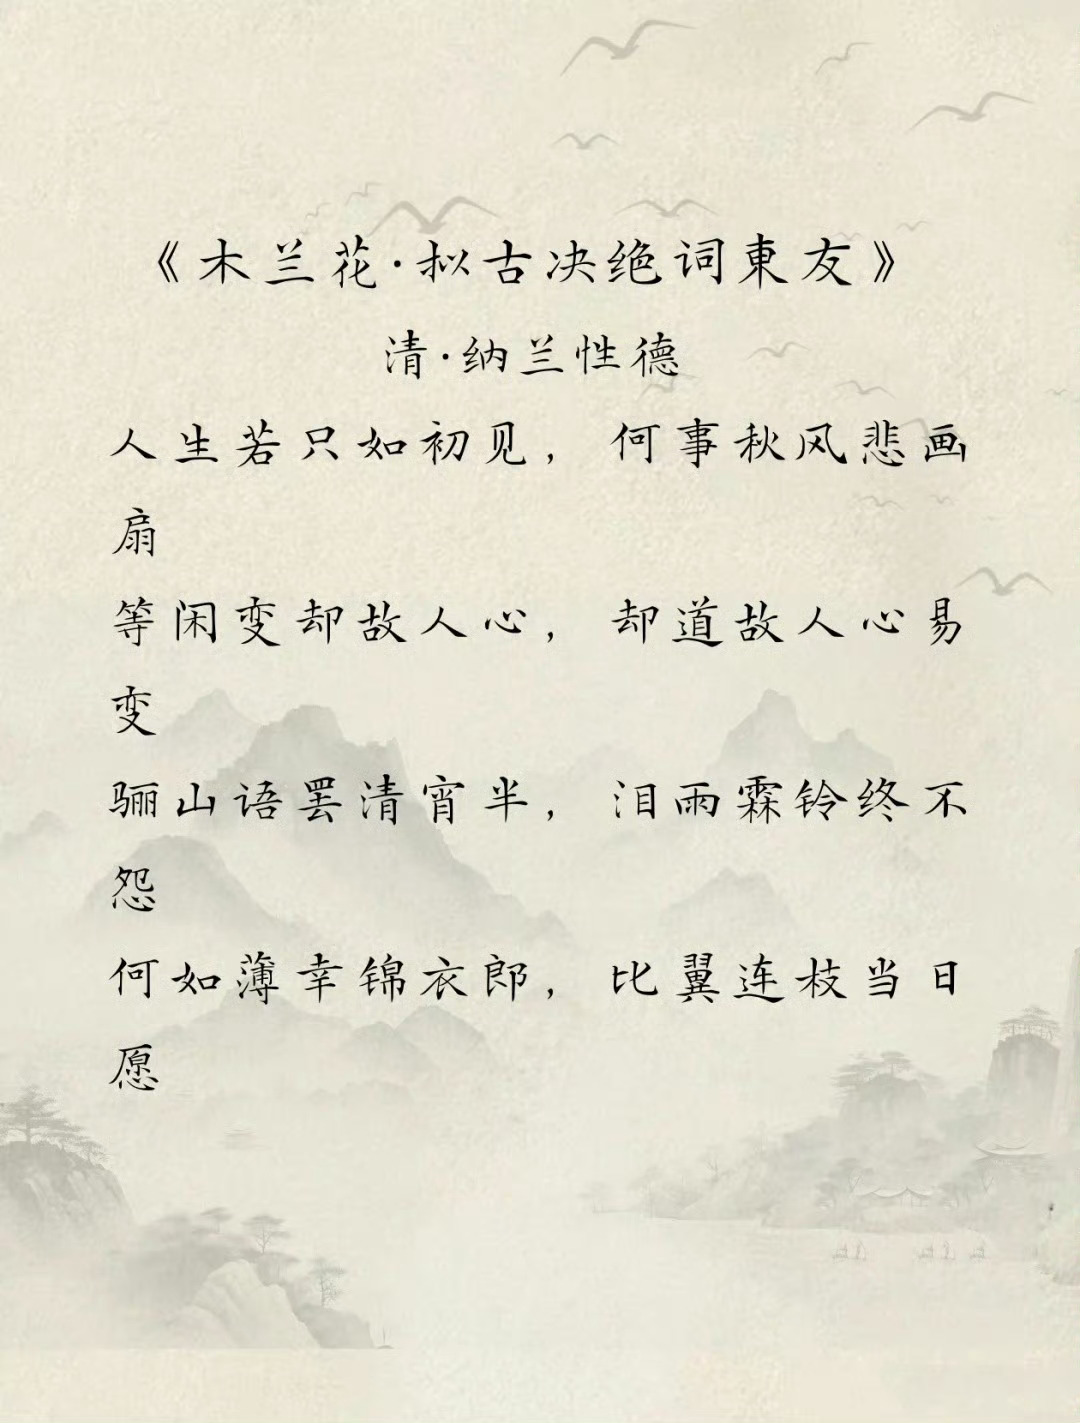 《木兰花·拟古决绝词東友》
清·纳兰性德
人生若只如初见，何事秋风悲画
扇
等闲变却故人心，却道故人心易
变
骊山语罢清宵半，泪雨霖铃终不
怨
何如薄幸锦衣郎，比翼连枝当日
愿